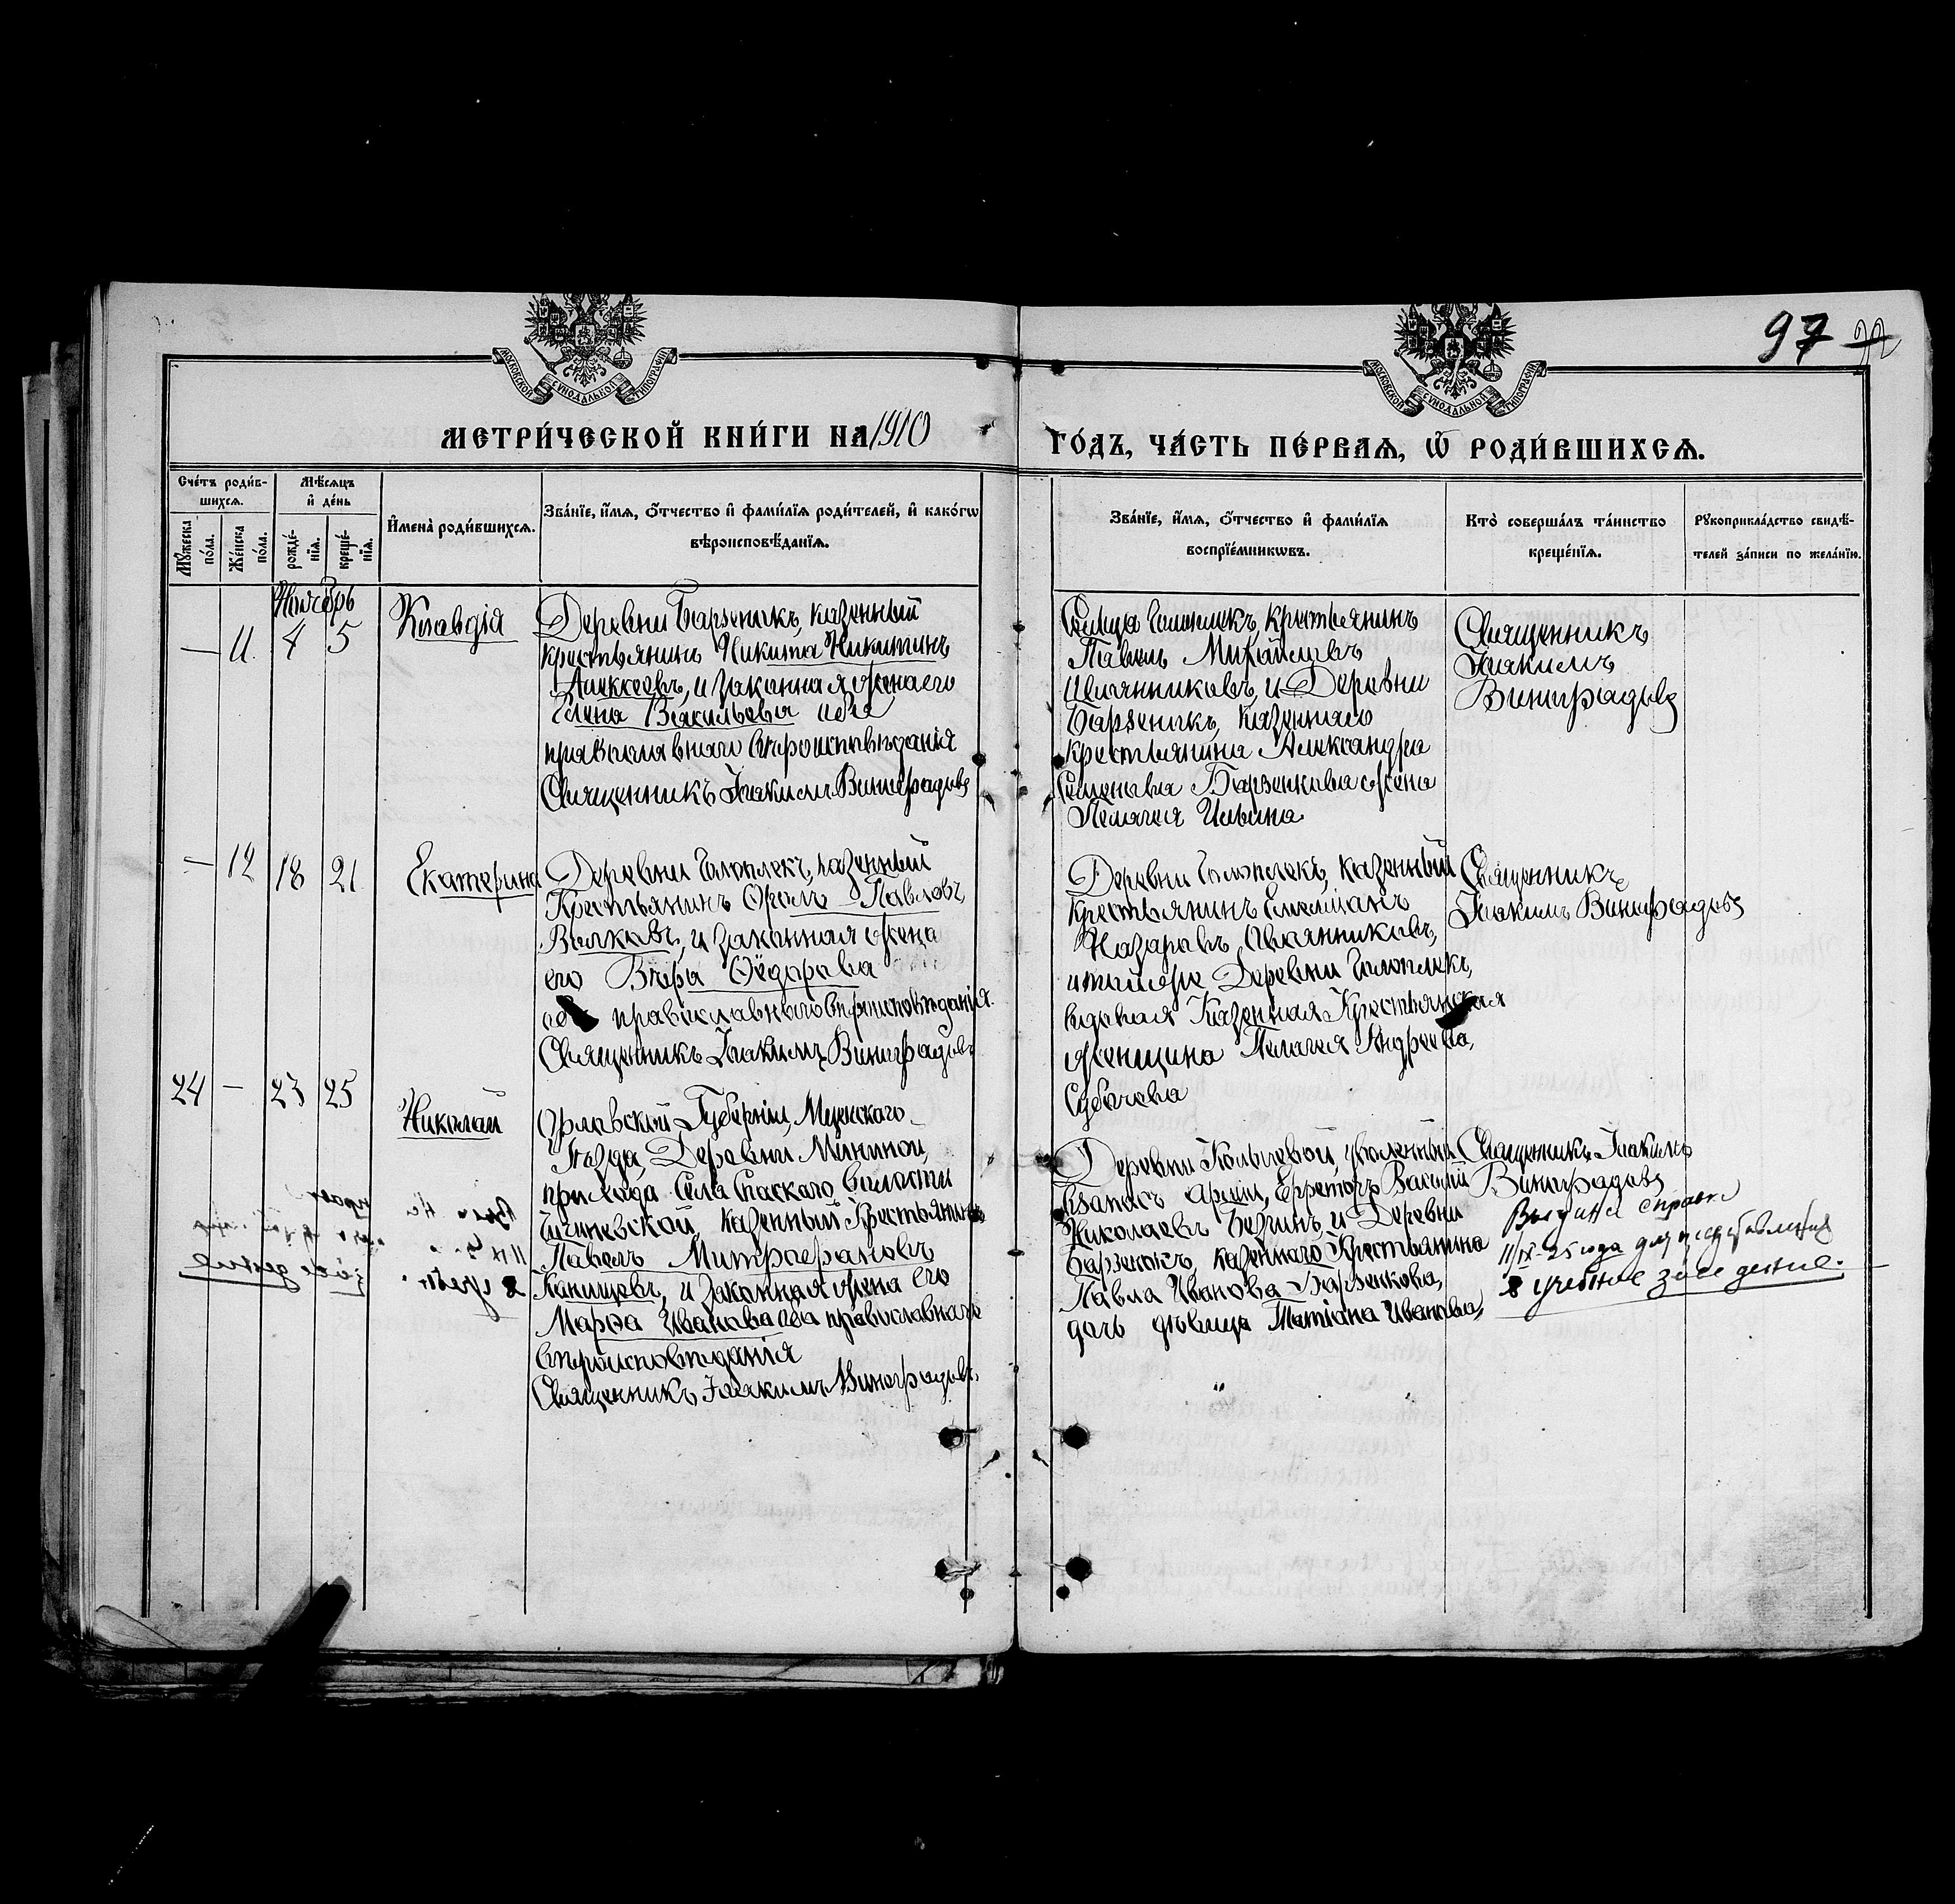 97 92
МОСКОВСКОЙ СѴНОДАЛЬНОЙ ТИПОГРАФІИ
МОСКОВСКОЙ СѴНОДАЛЬНОЙ ТИПОГРАФІИ
МЕТРИ́ЧЕСКОЙ КНИ́ГИ НА 1910
ГО́ДЪ, ЧА́СТЬ ПЕ́РВАѦ, Ѿ РОДИ́ВШИХСѦ.
Сче́тъ роди́в-
шихсѧ.
Мꙋжеска по́ла.
Же́нска по́ла.
Мѣ́сѧцъ
и҆ де́нь
рожде́-
нїѧ.
креще́-
нїѧ.
И҆мена̀ роди́вшихсѧ.
Зва́нїе, и҆́мѧ, ѻ҆́тчество и҆ фами́лїѧ роди́телей, и҆ како́гѡ
вѣроисповѣ́данїѧ.
Зва́нїе, и҆́мѧ, ѻ҆́тчество и҆ фами́лїѧ
воспрїе́мникѡвъ.
Кто̀ соверша́лъ та́инство
креще́нїѧ.
Рꙋкоприкла́дство свидѣ́-
телей за́писи по жела́нїю.
Ноябрь
— 11. 4 5
Клавдія
Деревни Барзеникъ, казенный
крестьянинъ Никита Никитинъ
Алексеевъ, и законная жена его
Елена Васильева оба
православнаго вѣроисповѣданія
Священникъ Іоакимъ Виноградовъ
крестьянинъ
Павелъ Михайловъ
и Деревни
Барзеникъ, казеннаго
крестьянина Александра
Семенова Барзенкова жена
Пелагея Ильина
Священникъ
Іоакимъ
Виноградовъ
— 12 18 21
Екатерина
Деревни казенный
Крестьянинъ Фролъ Павловъ
Волковъ, и законная жена
его Вѣра Ѳёдорова
оба православнаго вѣроисповѣданія.
Священникъ Іоакимъ Виноградовъ
Деревни казенный
крестьянинъ Емельянъ
Назаровъ
и той же Деревни
вдовая Казенная Крестьянская
женщина Пелагея Андреева,
Субочева
Священникъ
Іоакимъ Виноградовъ
24 — 23 25
Николай
Орловской Губерніи, Мценскаго
Уѣзда, Деревни Мининой,
прихода Села Спаскаго, Волости
казенный Крестьянинъ
Павелъ Митрофановъ
Канищевъ, и Законная жена его
Марѳа Иванова оба православнаго
вѣроисповѣданія
Священникъ Іоакимъ Виноградовъ.
Деревни уволенный
въ запасъ Арміи, Ефрейторъ Василій
Николаевъ и Деревни
Барзенокъ, казеннаго Крестьянина
Павла Иванова Барзенкова,
дочь дѣвица Татіана Иванова,
Священникъ Іоакимъ
Виноградовъ
Выдана справка
11/IX-25 года для представления
в учебное заведение.